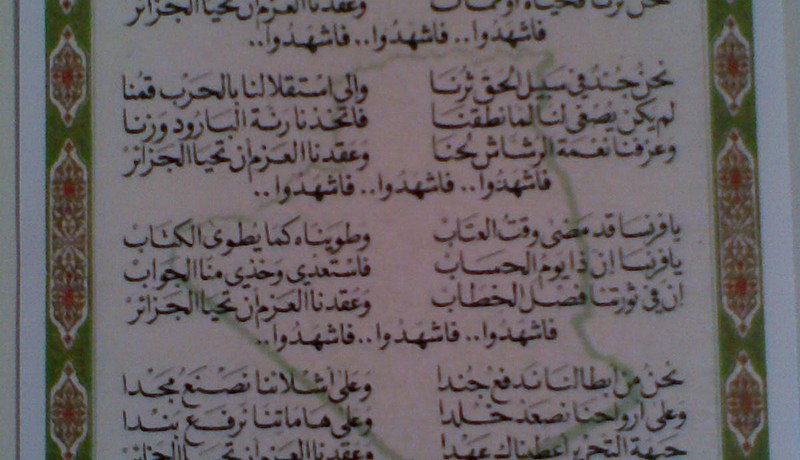 نحن ثرنا فحياة أو ممات وعقدنا العزم أن تحيا الجزائر
فاشهدوا.. فاشهدوا.. فاشهدوا..
نحنُ جُندٌ في سَبيل الحقّ ثُرنا وإلى اسْتقلالنا بالحَرْب قمُنا
لم يكن يُصغى لنا لما نطقنا فاتخذنا رنّة البَارود وَزنا
وعزفنا نغمة الرشاش لحنا وَعَقدنا العَزم أن تحيَا الجَزائرْ
فاشهَدُوا.. فاشهَدُوا.. فاشهَدُوا..
يا فرنسَا قد مَضى وقتُ العتَابْ وَطوينَاه كما يُطوى الكتابْ
يا فرنسا إن ذا يومُ الحسَابْ فاسْتعدي وَخذي منا الجَوابْ
إن في ثورتنا فصْل الخطابْ وَعَقدنا العَزم أن تحيَا الجَزائرْ
فاشهَدُوا.. فاشهَدُوا.. فاشهَدُوا..
نحنُ من أبطالنا ندفعُ جُندا وَعَلى أشلائنا نصْنَعُ مَجدا
وَعَلى أرواحنا نصعَدُ خلدا وَعَلى هَاماتنا نرفعُ بَندا
جبهة التحرير أعطيناك عهدا وعقدنا العزم أن تحيا الجزائر